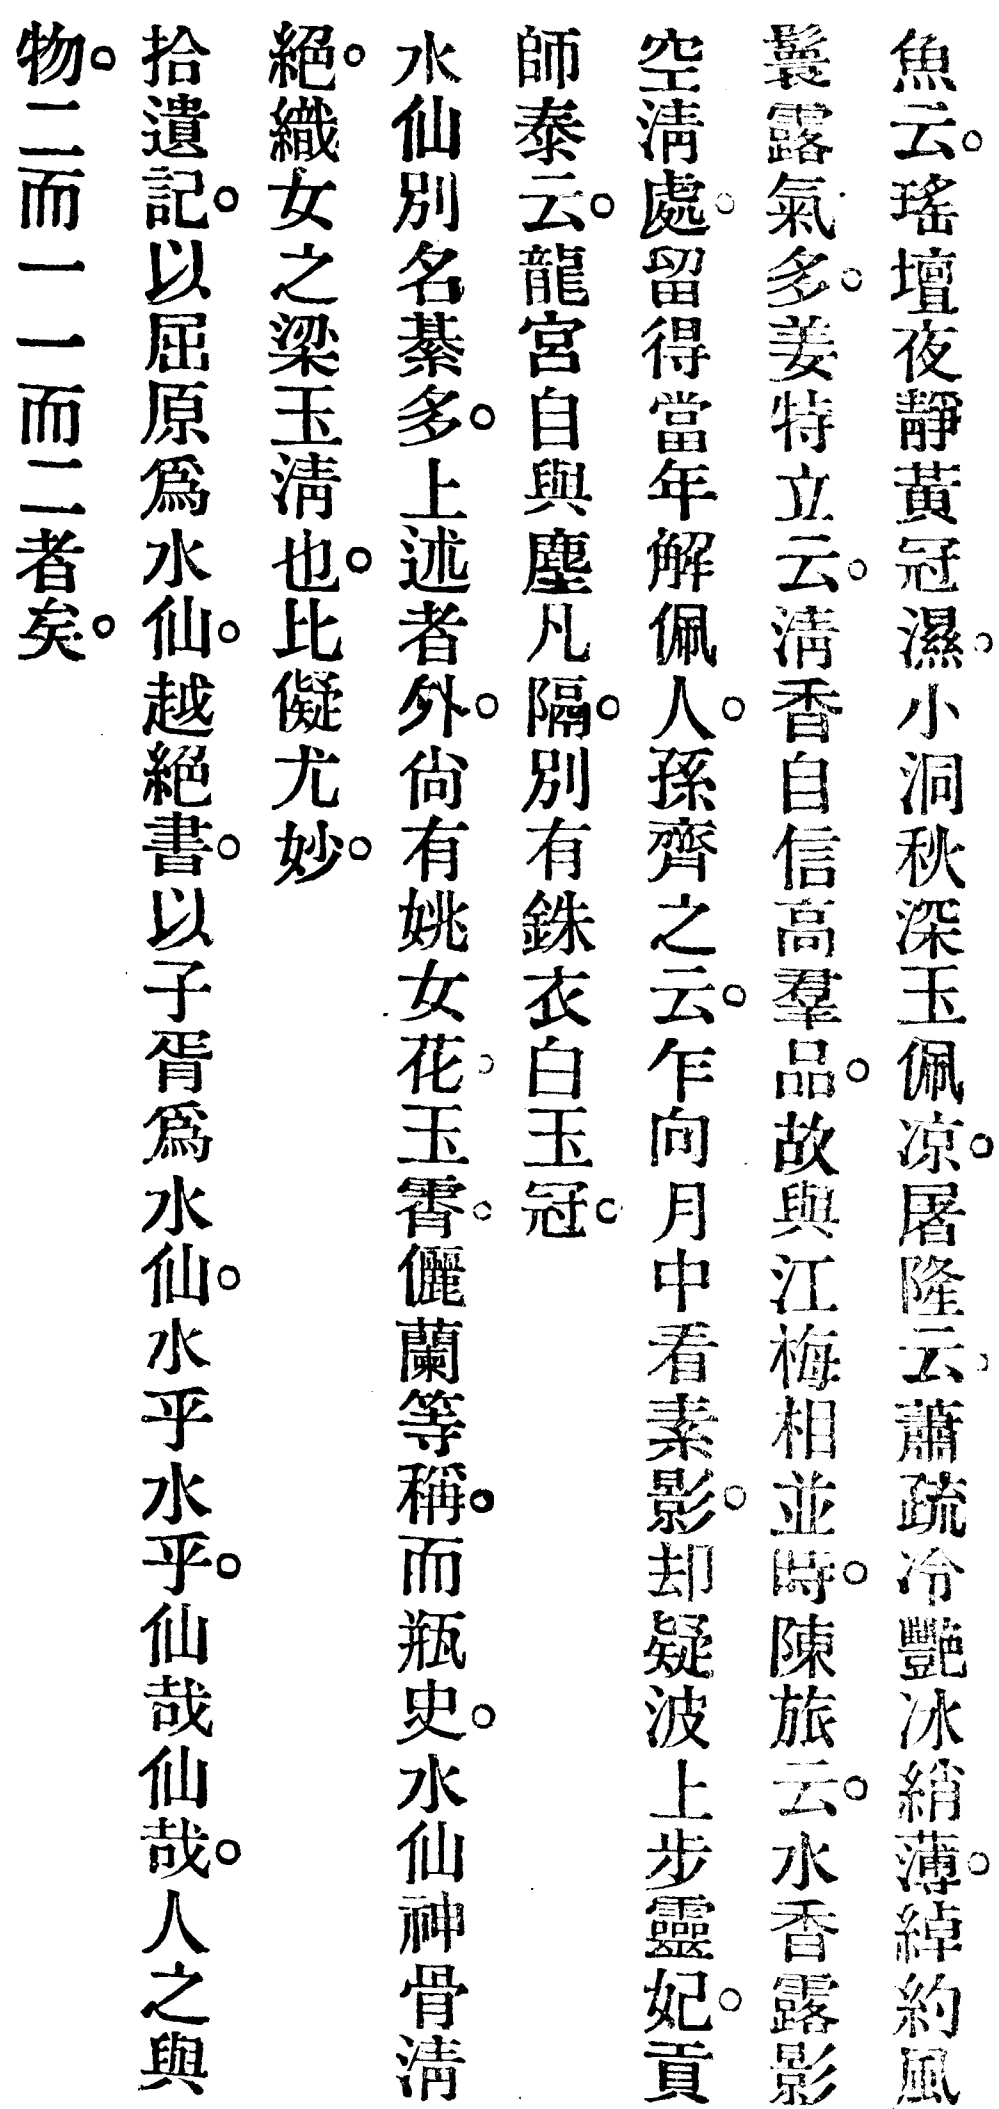 魚云。瑤壇夜靜黃冠濕。小洞秋深玉佩凉。屠隆云。蕭疏冷艷冰綃薄。綽約風
鬟露氣多。姜特立云。淸香自信高羣品。故與江梅相並時。陳旅云。水香露影
空淸處。留得當年解佩人。孫齊之云。乍向月中看素影。却疑波上步靈妃。貢
師泰云。龍宮自與塵凡隔。別有銖衣白玉冠。
水仙別名綦多。上述者外。尙有姚女花。玉霄。儷蘭等稱。而瓶史。水仙神骨淸
絕。織女之梁玉淸也。比儗尤妙。
拾遺記。以屈原爲水仙。越絕書。以子胥爲水仙。水乎水乎。仙哉仙哉。人之與
物。二而一一而二者矣。